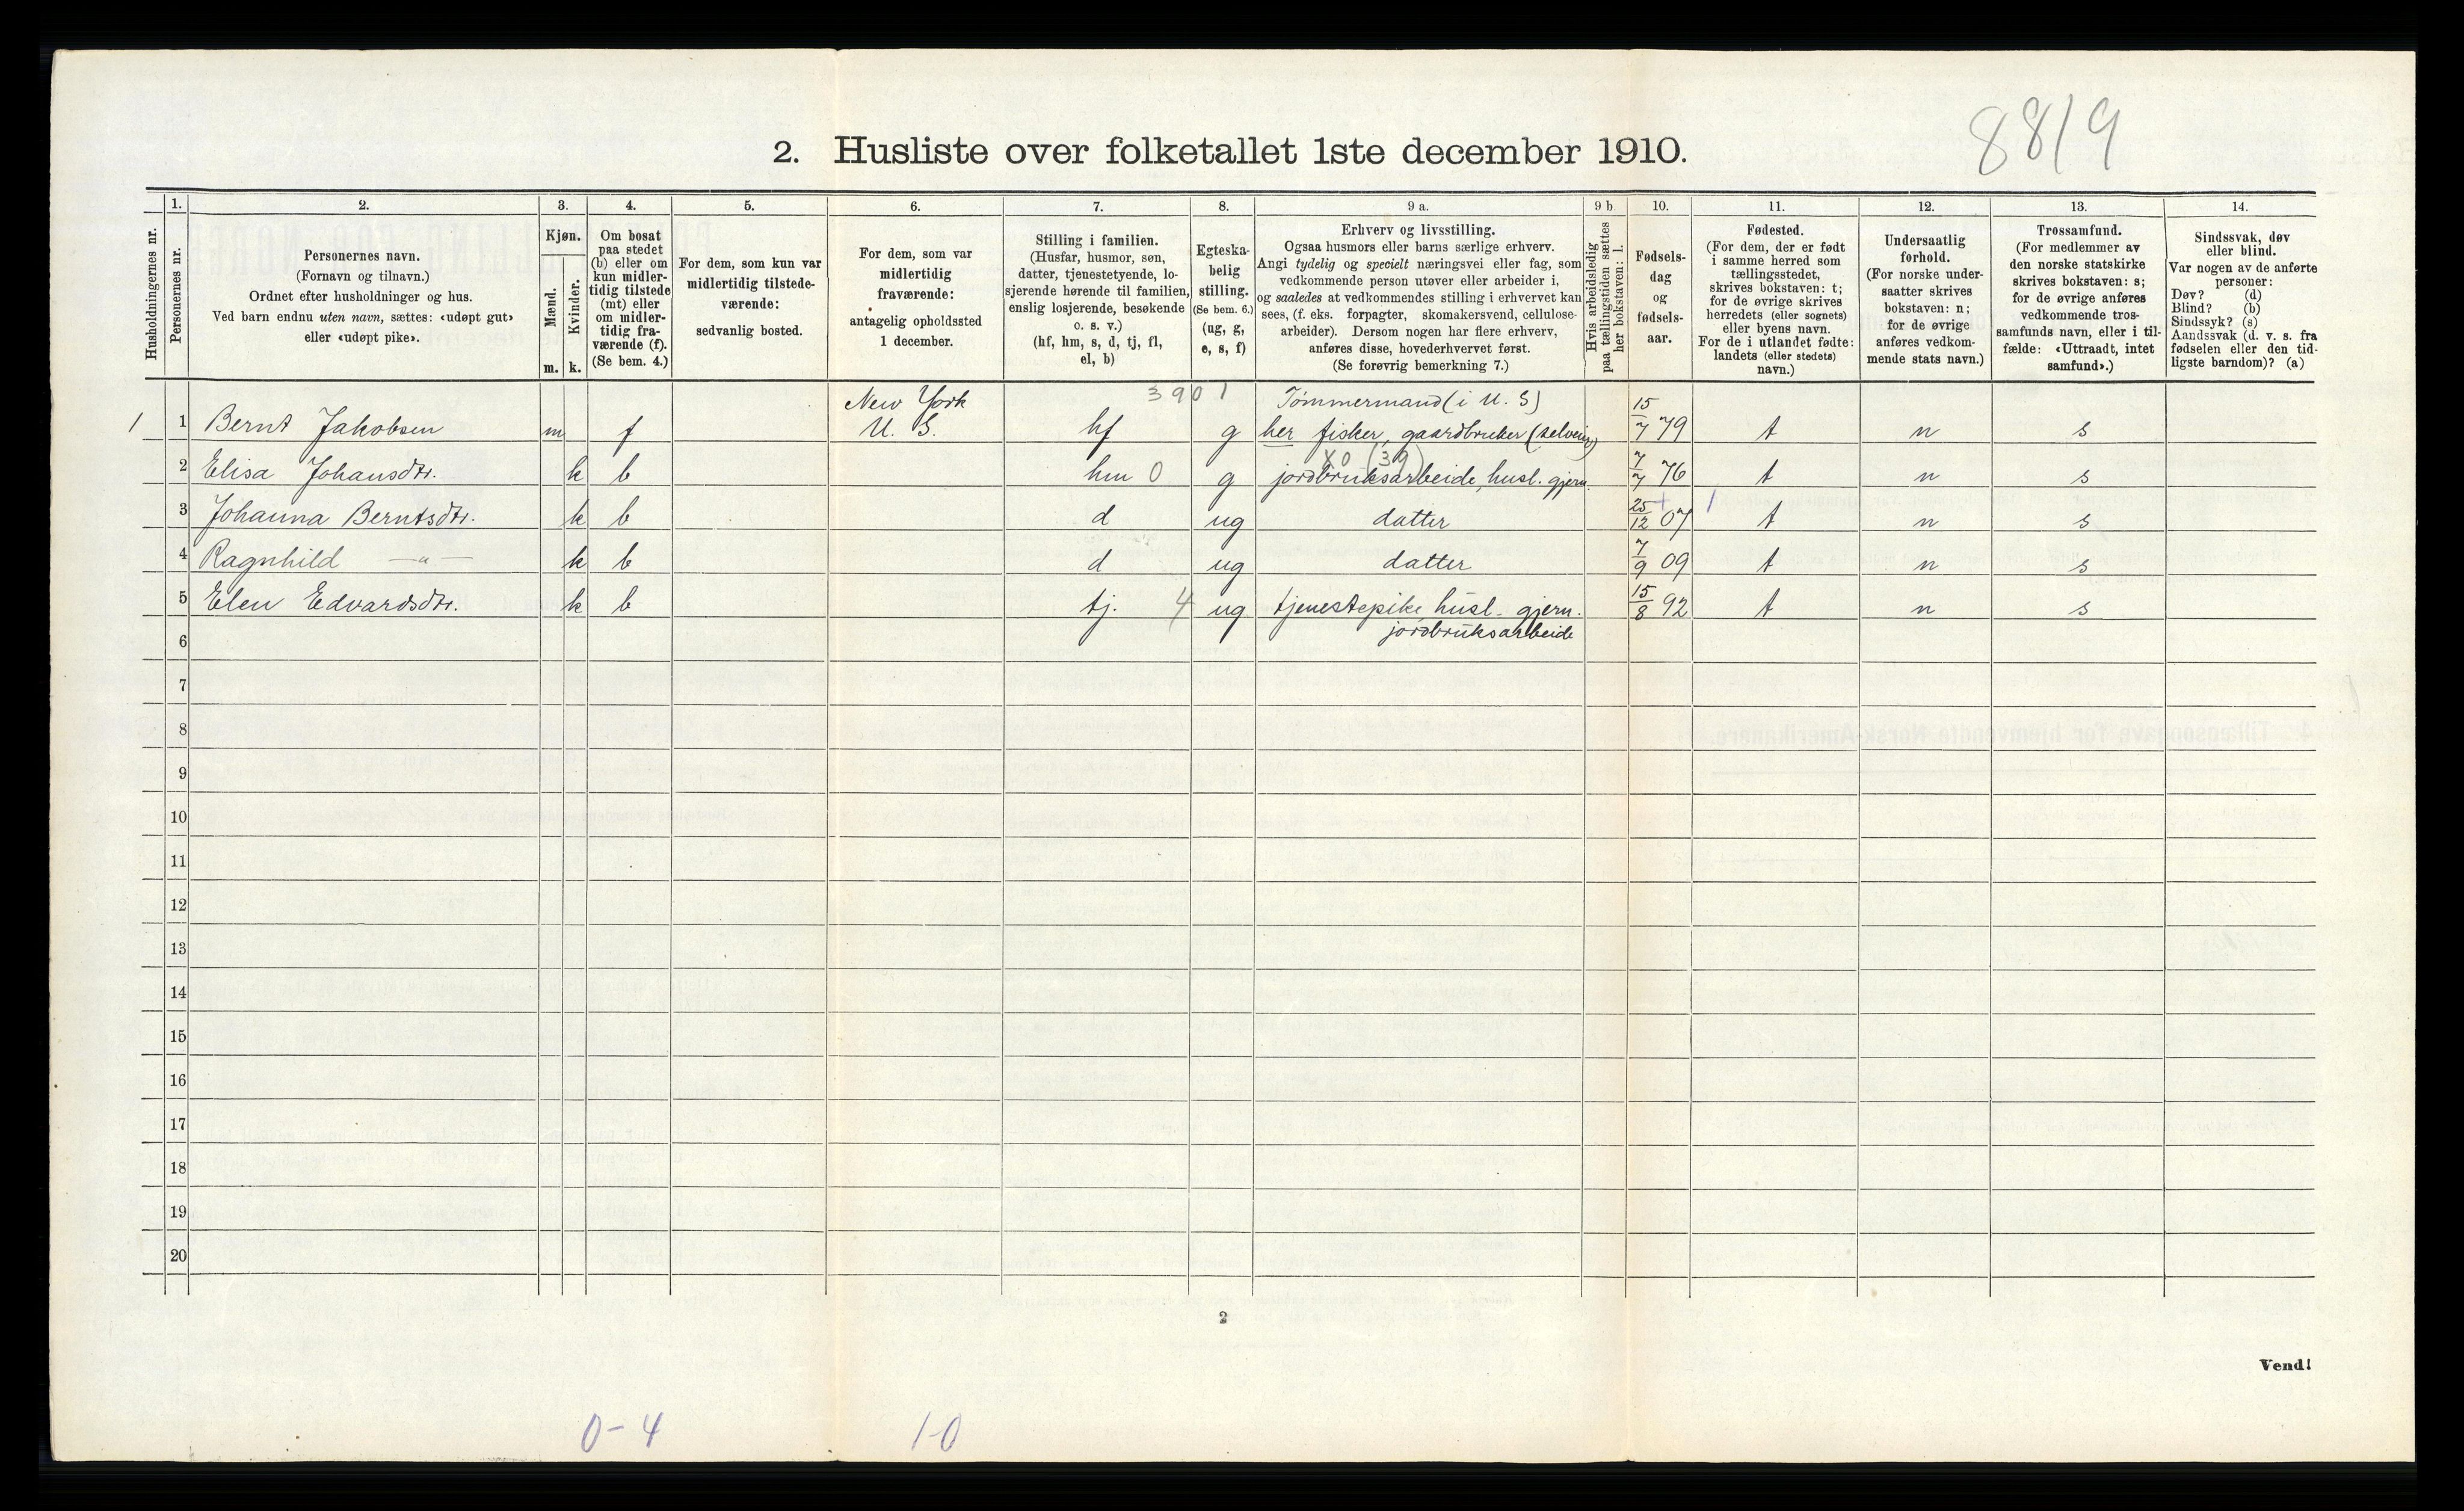 8819
2. Husliste over folketallet 1ste december 1910.
Husholdningernes nr.
1.
Personernes nr.
2.
Personernes navn.
(Fornavn og tilnavn.)
Ordnet efter husholdninger og hus.
Ved barn endnu uten navn, sættes: «udøpt gut»
eller «udøpt pike».
3.
Kjøn.
Mænd.
Kvinder.
m. k.
4.
Om bosat
paa stedet
(b) eller om
kun midler-
tidig tilstede
(mt) eller
om midler-
tidig fra-
værende (f).
(Se bem. 4.)
5.
For dem, som kun var
midlertidig tilstede-
værende:
sedvanlig bosted.
6.
For dem, som var
midlertidig
fraværende:
antagelig opholdssted
1 december.
7.
Stilling i familien.
(Husfar, husmor, søn,
datter, tjenestetyende, lo-
sjerende hørende til familien,
enslig losjerende, besøkende
o. s. v.)
(hf, hm, s, d, tj, fl,
el, b)
8.
Egteska-
belig
stilling.
(Se bem. 6.)
(ug, g,
e, s, f)
9 a.
Erhverv og livsstilling.
Ogsaa husmors eller barns særlige erhverv.
Angi tydelig og specielt næringsvei eller fag, som
vedkommende person utøver eller arbeider i,
og saaledes at vedkommendes stilling i erhvervet kan
sees, (f. eks. forpagter, skomakersvend, cellulose-
arbeider). Dersom nogen har flere erhverv,
anføres disse, hovederhvervet først.
(Se forøvrig bemerkning 7.)
9 b.
Hvis arbeidsledig
paa tællingstiden sættes
her bokstaven: l.
10.
Fødsels-
dag
og
fødsels-
aar.
11.
Fødested.
(For dem, der er født
i samme herred som
tællingsstedet,
skrives bokstaven: t;
for de øvrige skrives
herredets (eller sognets)
eller byens navn.
For de i utlandet fødte:
landets (eller stedets)
navn.)
12.
Undersaatlig
forhold.
(For norske under-
saatter skrives
bokstaven: n;
for de øvrige
anføres vedkom-
mende stats navn.)
13.
Trossamfund.
(For medlemmer av
den norske statskirke
skrives bokstaven: s;
for de øvrige anføres
vedkommende tros-
samfunds navn, eller i til-
fælde: «Uttraadt, intet
samfund».)
14.
Sindssvak, døv
eller blind.
Var nogen av de anførte
personer:
Døv? (d)
Blind? (b)
Sindssyk? (s)
Aandssvak (d. v. s. fra
fødselen eller den tid-
ligste barndom)? (a)
New York 3901 Tömmermand (i U. S)
1 1 Bernt Jakobsen m f U. S. hf g her fisker, gaardbruker (selveier) 15/7 79 t n s
X0 (39)
2 Elisa Johansdtr. k b hm 0 g jordbruksarbeide, husl. gjern. 7/7 76 t n s
3 Johanna Berntsdtr. k b d ug datter 25/12 07 1 t n s
4 Ragnhild —"— k b d ug datter 7/9 09 t n s
5 Elen Edvardsdtr. k b tj. 4 ug tjenestepike, husl. gjern. 15/8 92 t n s
6 jordbruksarbeide
7
8
9
10
11
12
13
14
15
16
17
18
19
20
2
Vend!
0-4 1-0